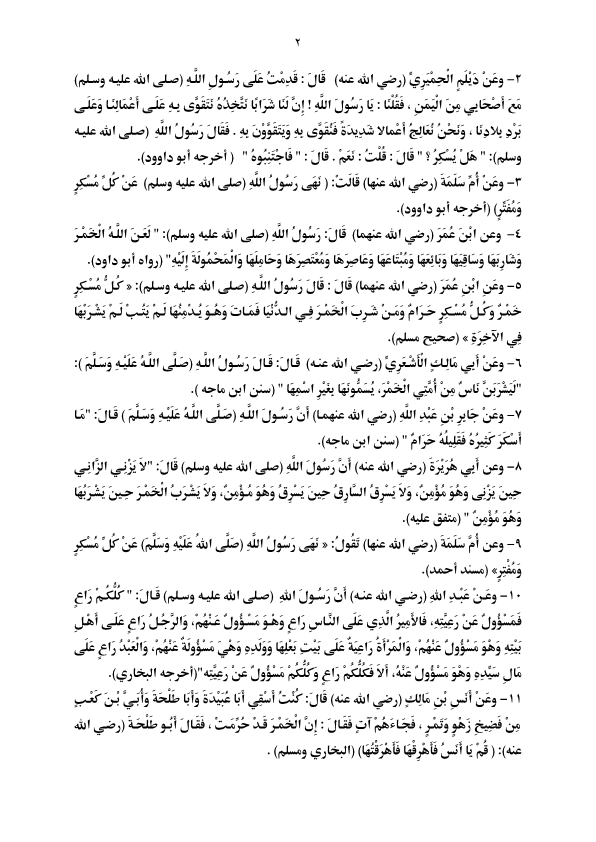 ٢
٢- وعَنْ دَيْلَمٍ الْحِمْيَرِيِّ (رضي الله عنه) قَالَ : قَدِمْتُ عَلَى رَسُولِ اللَّهِ (صلى الله عليه وسلم)
مَعَ أَصْحَابِي مِنَ الْيَمَنِ ، فَقُلْنَا : يَا رَسُولَ اللَّهِ ! إِنَّ لَنَا شَرَابًا نَتَّخِذُهُ نَتَقَوَّى بِهِ عَلَى أَعْمَالِنَا وَعَلَى
بَرْدِ بِلادِنَا ، وَنَحْنُ نُعَالِجُ أَعْمالا شَدِيدَةً فَنُقَوَّى بِهِ وَيَتَقَوَّوْنَ بِهِ . فَقَالَ رَسُولُ اللَّهِ (صلى الله عليه
وسلم): " هَلْ يُسْكِرُ ؟ " قَالَ : قُلْتُ : نَعَمْ . قَالَ : " فَاجْتَنِبُوهُ " ( أخرجه أبو داوود).
٣- وعَنْ أُمِّ سَلَمَةَ (رضي الله عنها) قَالَتْ: ( نَهَى رَسُولُ اللَّهِ (صلى الله عليه وسلم) عَنْ كُلِّ مُسْكِرٍ
وَمُفَتِّرٍ) (أخرجه أبو داوود).
٤- وعن ابْنَ عُمَرَ (رضي الله عنهما) قَالَ: رَسُولُ اللَّهِ (صلى الله عليه وسلم): " لَعَنَ اللَّهُ الْخَمْرَ
وَشَارِبَهَا وَسَاقِيَهَا وَبَائِعَهَا وَمُبْتَاعَهَا وَعَاصِرَهَا وَمُعْتَصِرَهَا وَحَامِلَهَا وَالْمَحْمُولَةَ إِلَيْهِ" (رواه أبو داود).
٥- وعَنِ ابْنِ عُمَرَ (رضي الله عنهما) قَالَ : قَالَ رَسُولُ اللَّهِ (صلى الله عليه وسلم): « كُلُّ مُسْكِرٍ
خَمْرٌ وَكُلُّ مُسْكِرٍ حَرَامٌ وَمَنْ شَرِبَ الْخَمْرَ فِى الدُّنْيَا فَمَاتَ وَهُوَ يُدْمِنُهَا لَمْ يَتُبْ لَمْ يَشْرَبْهَا
فِي الآخِرَةِ » (صحيح مسلم).
٦- وعَنْ أَبِي مَالِكٍ الْأَشْعَرِيِّ (رضي الله عنه) قَالَ: قَالَ رَسُولُ اللَّهِ (صَلَّى اللَّهُ عَلَيْهِ وَسَلَّمَ ):
"لَيَشْرَبَنَّ نَاسٌ مِنْ أُمَّتِي الْخَمْرَ، يُسَمُّونَهَا بِغَيْرِ اسْمِهَا " (سنن ابن ماجه ).
٧- وعَنْ جَابِرِ بْنِ عَبْدِ اللَّهِ (رضي الله عنهما) أَنَّ رَسُولَ اللَّهِ (صَلَّى اللَّهُ عَلَيْهِ وَسَلَّمَ ) قَالَ: "مَا
أَسْكَرَ كَثِيرُهُ فَقَلِيلُهُ حَرَامٌ " (سنن ابن ماجه).
٨- وعن أَبِي هُرَيْرَةَ (رضي الله عنه) أَنَّ رَسُولَ اللَّهِ (صلى الله عليه وسلم) قَالَ: "لاَ يَزْنِي الزَّانِي
حِينَ يَزْنِى وَهُوَ مُؤْمِنٌ، وَلاَ يَسْرِقُ السَّارِقُ حِينَ يَسْرِقُ وَهُوَ مُؤْمِنٌ، وَلاَ يَشْرَبُ الْخَمْرَ حِينَ يَشْرَبُهَا
وَهُوَ مُؤْمِنٌ " (متفق عليه).
٩- وعن أُمَّ سَلَمَةَ (رضي الله عنها) تَقُولُ: « نَهَى رَسُولُ اللَّهِ (صَلَّى اللهُ عَلَيْهِ وَسَلَّمَ) عَنْ كُلِّ مُسْكِرٍ
وَمُفْتِرٍ» (مسند أحمد).
١٠- وعَنْ عَبْدِ اللهِ (رضي الله عنه) أَنَّ رَسُولَ اللهِ (صلى الله عليه وسلم) قَالَ: " كُلُّكُمْ رَاعٍ
فَمَسْؤُولٌ عَنْ رَعِيَّتِهِ، فَالأَمِيرُ الَّذِي عَلَى النَّاسِ رَاعٍ وَهُوَ مَسْؤُولٌ عَنْهُمْ، وَالرَّجُلُ رَاعٍ عَلَى أَهْلِ
بَيْتِهِ وَهُوَ مَسْؤُولٌ عَنْهُمْ، وَالْمَرْأَةُ رَاعِيَةٌ عَلَى بَيْتِ بَعْلِهَا وَوَلَدِهِ وَهِيَ مَسْؤُولَةٌ عَنْهُمْ، وَالْعَبْدُ رَاعٍ عَلَى
مَالِ سَيِّدِهِ وَهُوَ مَسْؤُولٌ عَنْهُ، أَلاَ فَكُلُّكُمْ رَاعٍ وَكُلُّكُمْ مَسْؤُولٌ عَنْ رَعِيَّتِهِ"(أخرجه البخاري).
١١- وعَنْ أَنَسِ بْنِ مَالِكٍ (رضي الله عنه) قَالَ: كُنْتُ أَسْقِي أَبَا عُبَيْدَةَ وَأَبَا طَلْحَةَ وَأُبَيَّ بْنَ كَعْبٍ
مِنْ فَضِيخِ زَهْوٍ وَتَمْرٍ ، فَجَاءَهُمْ آتٍ فَقَالَ : إِنَّ الْخَمْرَ قَدْ حُرِّمَتْ ، فَقَالَ أَبُو طَلْحَةَ (رضي الله
عنه): ( قُمْ يَا أَنَسُ فَأَهْرِقْهَا فَأَهْرَقْتُهَا) (البخاري ومسلم) .